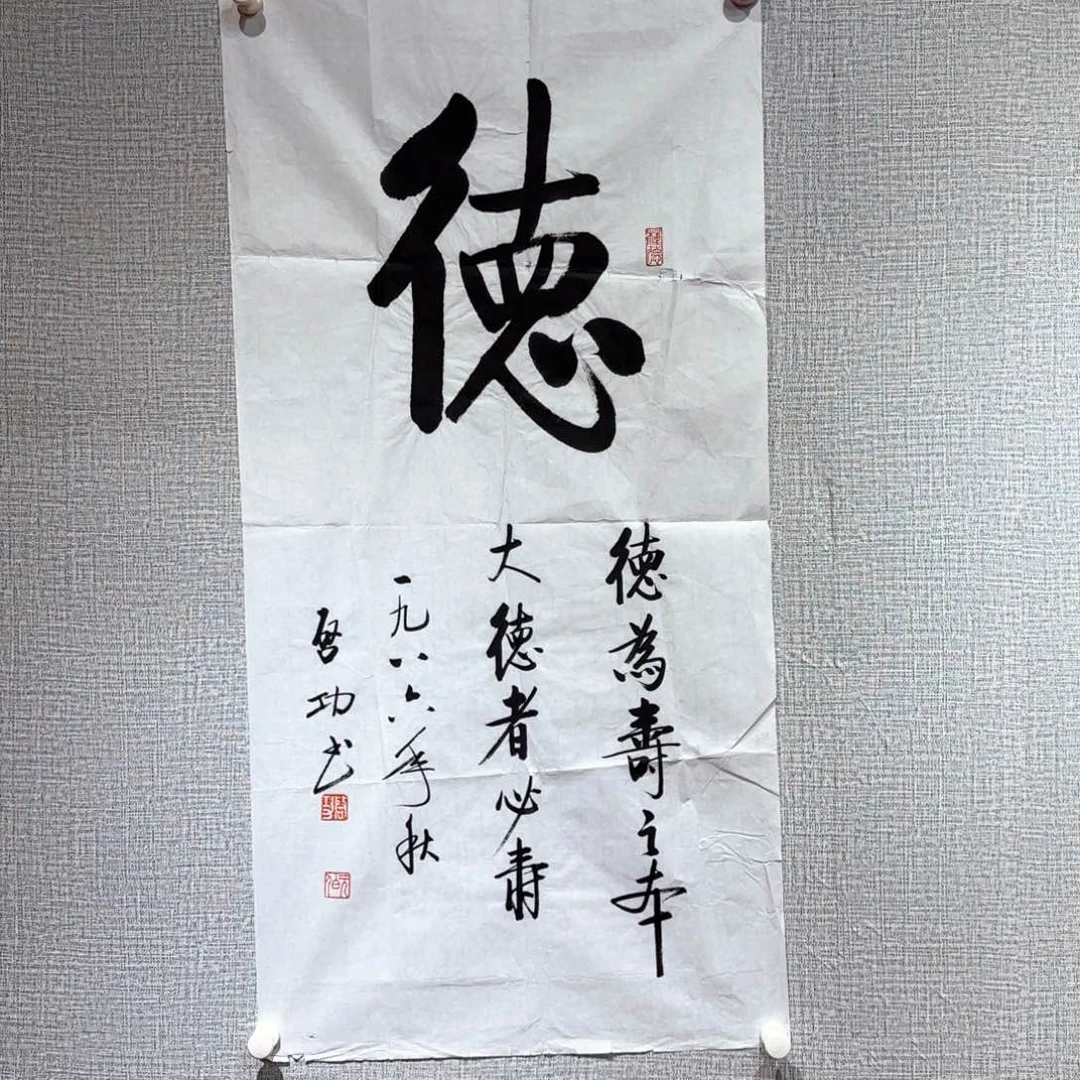 德
德為壽之本
大德者必壽
一九八六年秋
啓功书